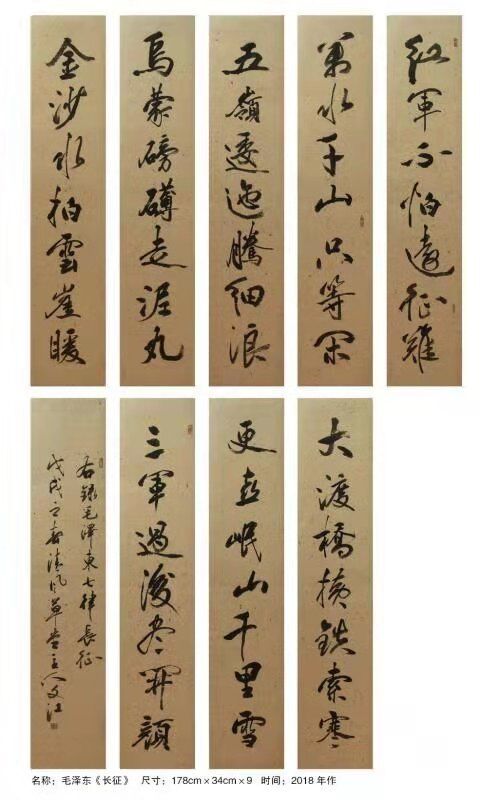 紅軍不怕遠征難
萬水千山只等閑
五嶺逶迤騰細浪
烏蒙磅礴走泥丸
金沙水拍雲崖暖
大渡橋横鐵索寒
更喜岷山千里雪
三軍過後盡開顔
右録毛澤東七律長征
戊戌之春清風草堂主人文江
名称：毛泽东《长征》 尺寸：178cm×34cm×9 时间：2018 年作